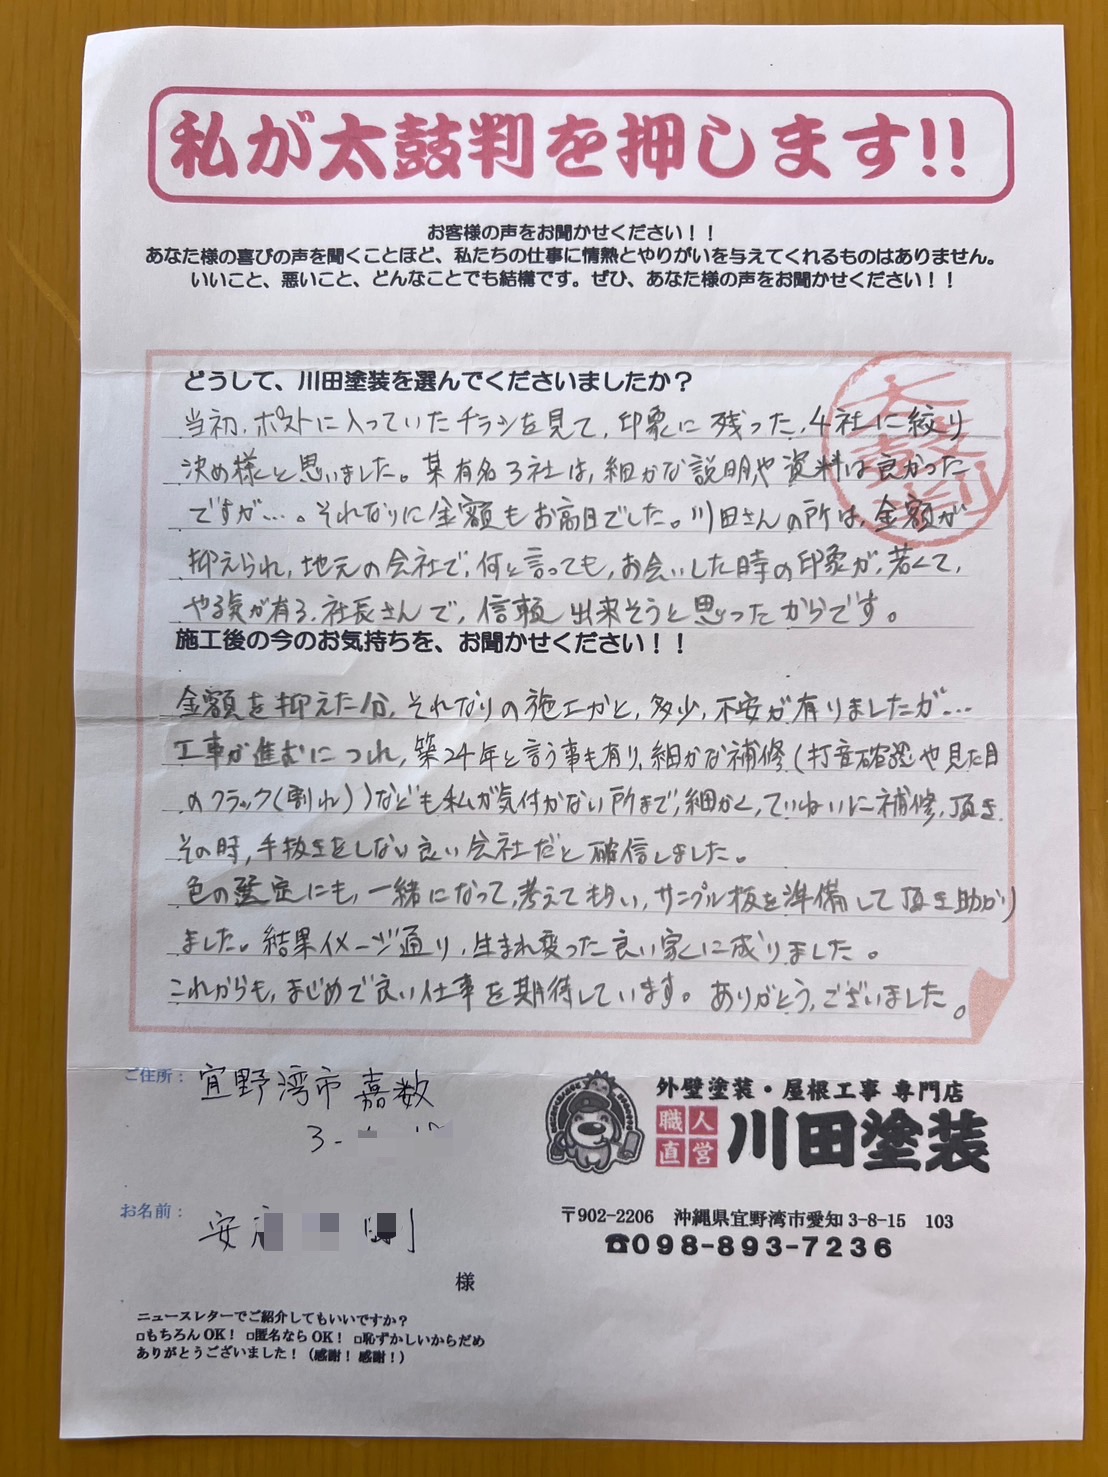 私が太鼓判を押します!!
お客様の声をお聞かせください！！
あなた様の喜びの声を聞くことほど、私たちの仕事に情熱とやりがいを与えてくれるものはありません。
いいこと、悪いこと、どんなことでも結構です。ぜひ、あなた様の声をお聞かせください！！
どうして、川田塗装を選んでくださいましたか？
太鼓判
当初、ポストに入っていたチラシを見て、印象に残った、4社に絞り
決め様と思いました。某有名3社は、細かな説明や資料は良かった
ですが…。それなりに金額もお高目でした。川田さんの所は、金額が
抑えられ、地元の会社で、何と言っても、お会いした時の印象が、若くて、
やる気が有る、社長さんで、信頼出来そうと思ったからです。
施工後の今のお気持ちを、お聞かせください！！
金額を抑えた分、それなりの施工かと、多少、不安が有りましたが…
工事が進むにつれ、築24年と言う事も有り、細かな補修(打音確認や見た目
のクラック(割れ))なども私が気付かない所まで、細かく、ていねいに補修、頂き、
その時、手抜きをしない良い会社だと確信しました。
色の選定にも、一緒になって、考えてもらい、サンプル板を準備して頂き助かり
ました。結果イメージ通り、生まれ変った良い家に成りました。
これからも、まじめで良い仕事を期待しています。ありがとう、ございました。
ご住所：宜野湾市嘉数
3-
外壁塗装・屋根工事 専門店
職人直営 川田塗装
お名前：安
様
〒902-2206 沖縄県宜野湾市愛知3-8-15 103
☎098-893-7236
ニュースレターでご紹介してもいいですか？
□もちろんOK！ □匿名ならOK！ □恥ずかしいからだめ
ありがとうございました！（感謝！感謝！）